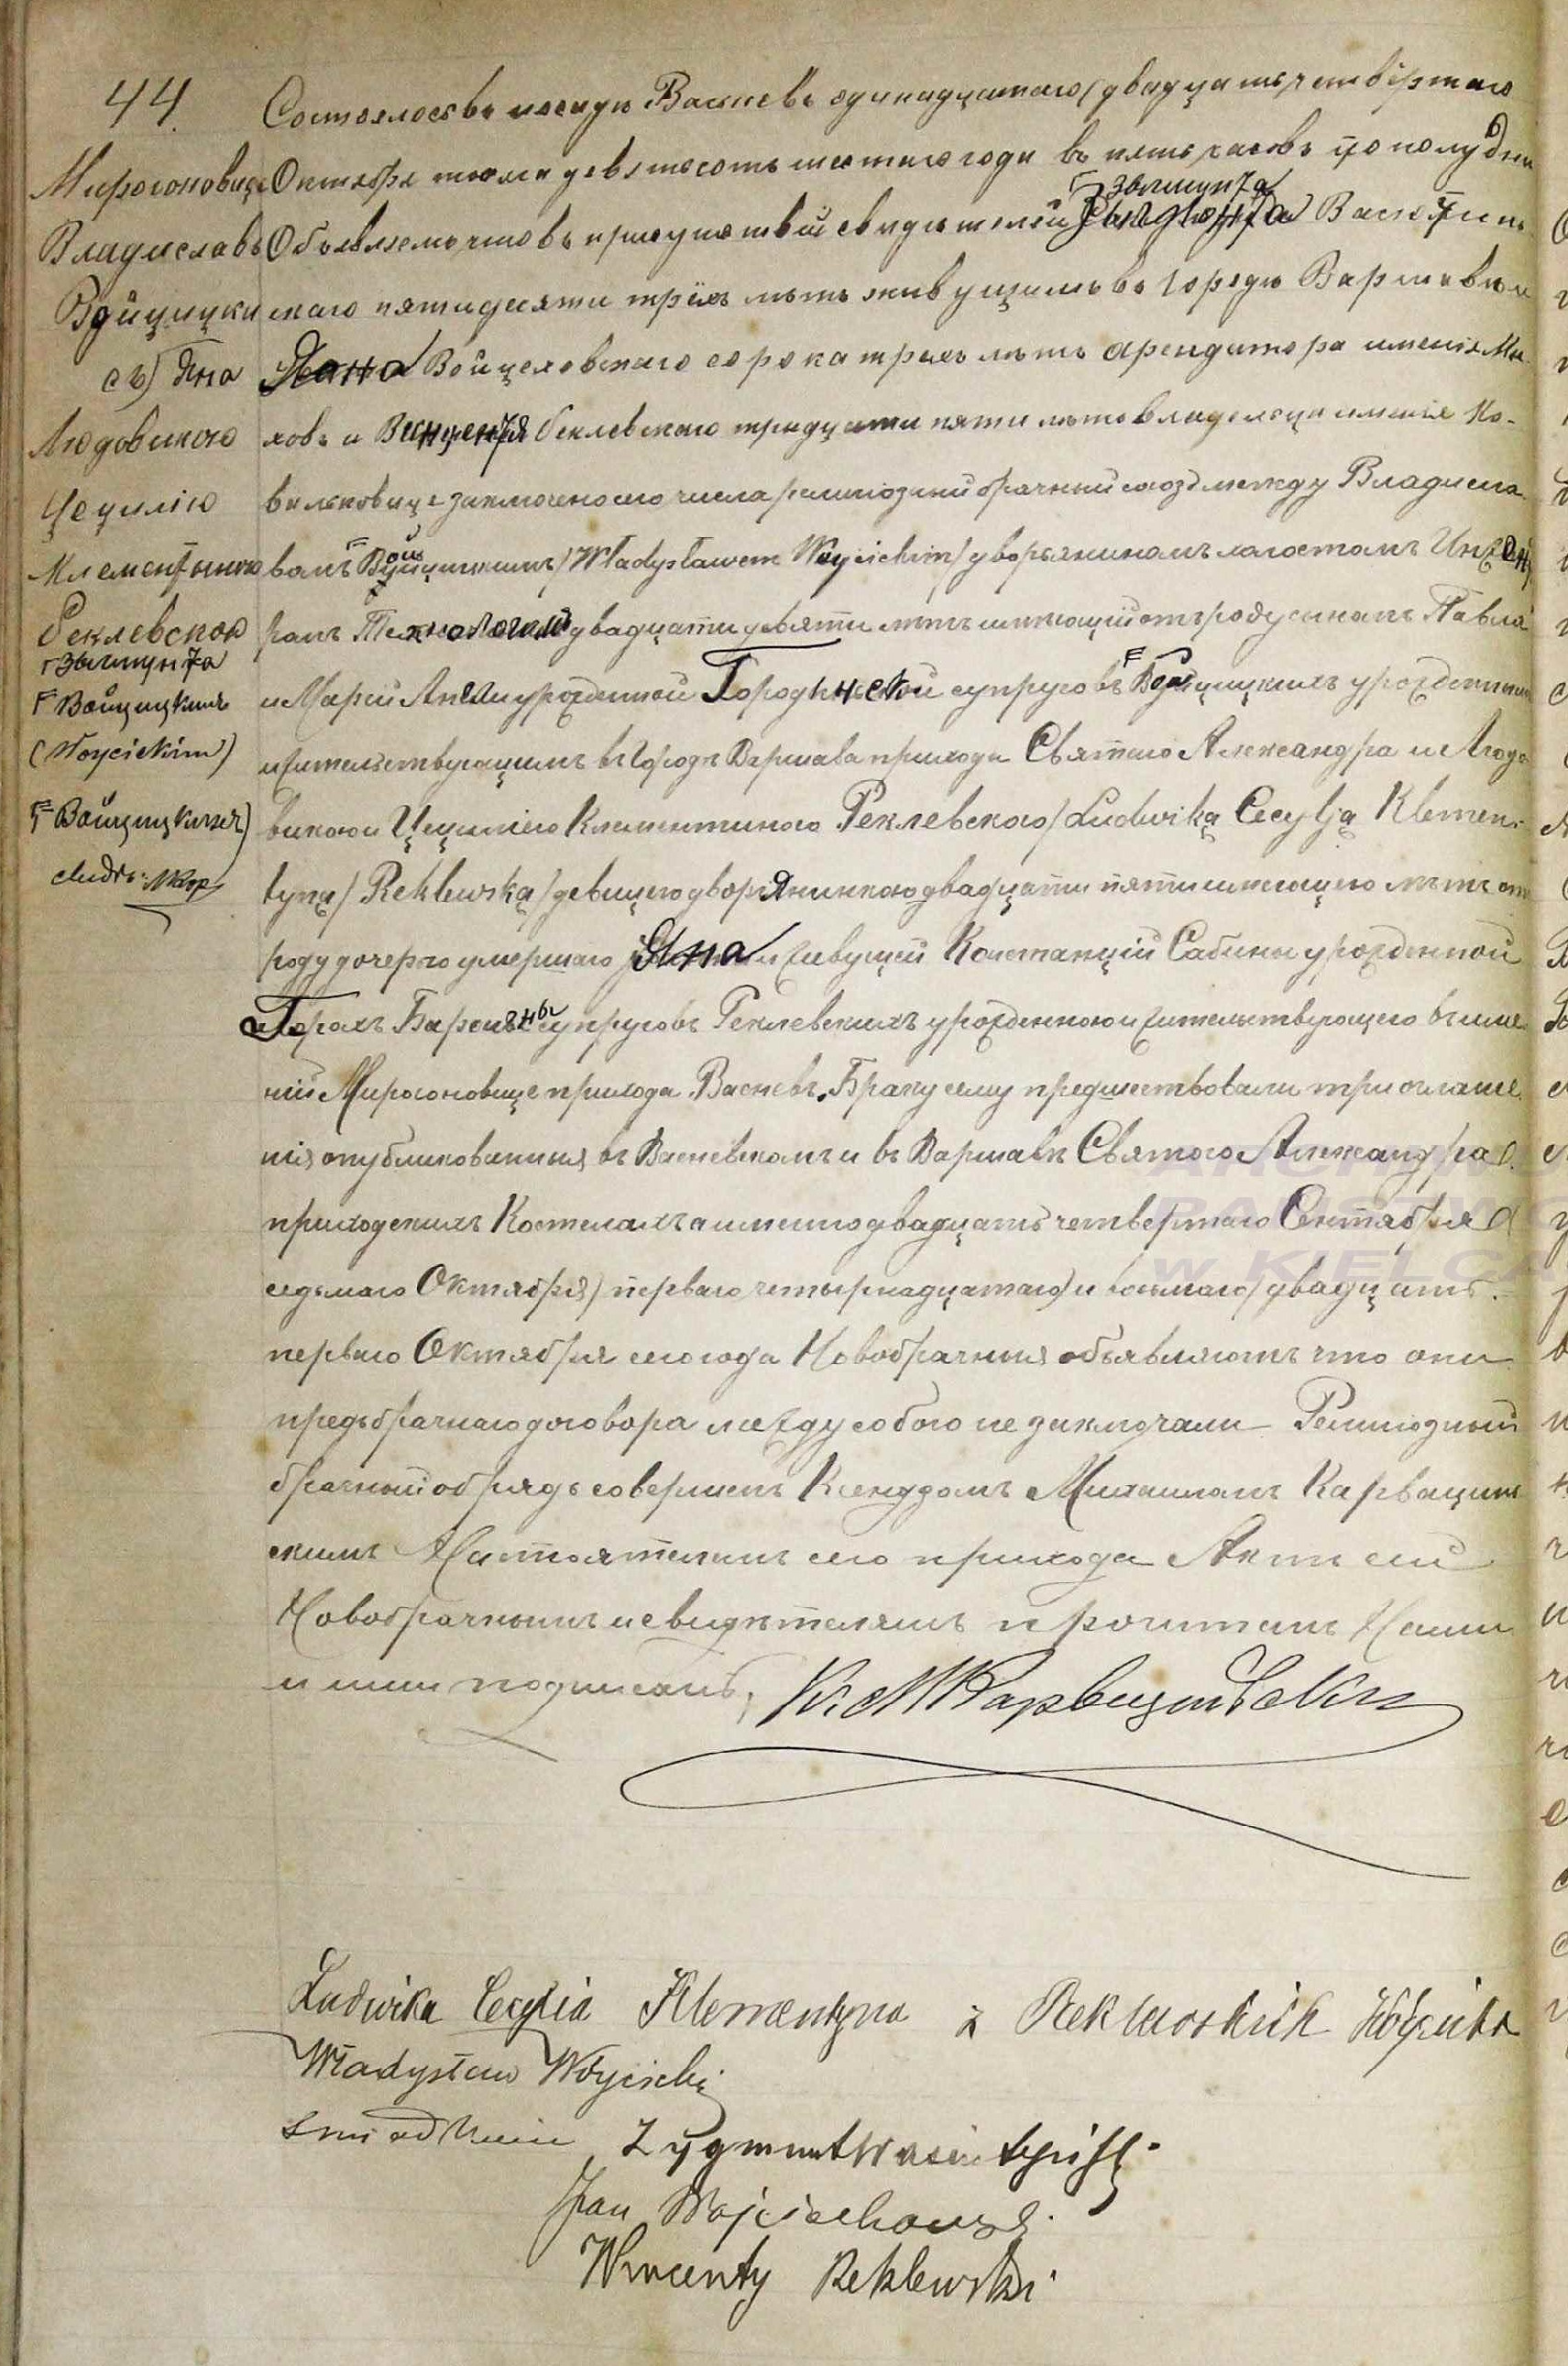 44.
Мирогоновице
Владиславъ
Войцицки
съ) Яна
Людовикою
Цецилію
Клементиною
Реклевскою
г Зыгмунта
Войцицкимъ
(Woycickim)
Войцицкихъ)
Состоялось въ посадѣ Васневъ одинадцатаго (двадцать четвёртаго
Октября тысяча девятьсотъ шестаго года въ пять часовъ по полудни
Объявляемъ что въ присутствіи свидѣтелей Зыгмунта Васютин-
скаго пятидесяти трёхъ лѣтъ живущимъ въ Городѣ Варшавѣ и
Яна Войцеховскаго сорока трехъ лѣтъ арендатора имѣнія Ми-
ховъ и Винцентя Реклевскаго тридцати пяти лѣтъ владельца имѣнія Ко-
вальковице заключено сего числа религіозный брачный союзъ между Владисла-
вомъ Войцицкимъ (Władysławem Woycickim) дворяниномъ холостомъ Инжен
ромъ Технологомъ двадцати девяти лѣтъ имѣющій отъ роду сыномъ Павла
и Маріи Анели урожденной Городынской супруговъ Войцицкихъ урожденнымъ
жительствующимъ въ Городѣ Варшава прихода Святаго Александра и Людо
викою Цецилію Клементиною Реклевскою (Ludwiką Cecylją Klemen-
tyną) Reklewską) девицею дворянинкою двадцати пяти имеющею лѣтъ отъ
роду дочерью умершаго Яна и живущей Констанціи Сабины урожденной
Горохъ Баронянсы супруговъ Реклевскихъ урожденною и жительствующею въ име
ніи Мирогоновице прихода Васневъ. Браку сему предшествовали три оглаше
нія опубликованныя въ Васневскомъ и въ Варшавѣ Святого Александра
приходскихъ Костелахъ а именно двадцать четвертаго Сентября (
седьмаго Октября) перваго (четырнадцатаго) и восьмаго (двадцать
перваго Октября сего года Новобрачныя объявляютъ что они
предъбрачнаго договора между собою не заключали Религіозный
брачный обрядъ совершенъ Ксендзомъ Михаиломъ Карвацин
скимъ Настоятелемъ сего прихода Актъ сей
Новобрачнымъ и свидѣтелямъ прочитанъ Нами
и ими подписанъ.
Ludwika Cecylia Klementyna z Reklewskich Wóycicka
Władysław Wóycicki
Zygmunt Wasiutyński
Jan Wojciechowski
Wincenty Reklewski